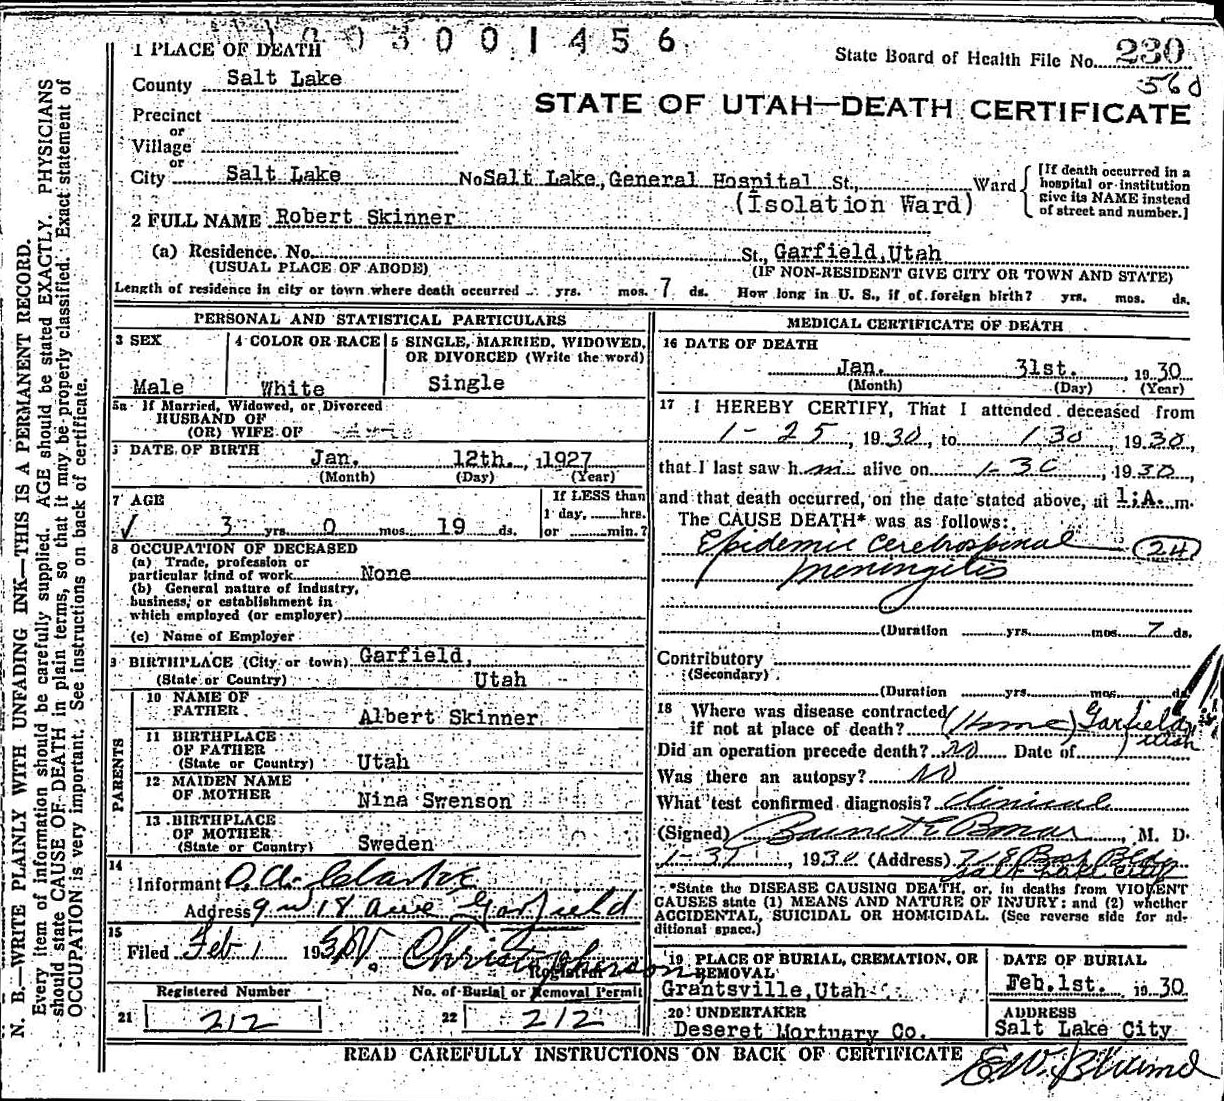 1 PLACE OF DEATH
3001456
State Board of Health File No. 230
560
County Salt Lake
STATE OF UTAH—DEATH CERTIFICATE
Precinct
or
Village
or
City Salt Lake No Salt Lake, General Hospital St., Ward
(Isolation Ward)
[If death occurred in a
hospital or institution
give its NAME instead
of street and number.]
2 FULL NAME Robert Skinner
(a) Residence. No. St., Garfield, Utah
(USUAL PLACE OF ABODE) (IF NON-RESIDENT GIVE CITY OR TOWN AND STATE)
Length of residence in city or town where death occurred yrs. mos. 7 ds. How long in U. S., if of foreign birth? yrs. mos. ds.
PERSONAL AND STATISTICAL PARTICULARS
3 SEX
Male
4 COLOR OR RACE
White
5 SINGLE, MARRIED, WIDOWED,
OR DIVORCED (Write the word)
Single
5a If Married, Widowed, or Divorced
HUSBAND OF
(OR) WIFE OF
DATE OF BIRTH
Jan. 12th., 1927
(Month) (Day) (Year)
7 AGE
3 yrs. 0 mos. 19 ds.
If LESS than
1 day, hrs.
or min.?
8 OCCUPATION OF DECEASED
(a) Trade, profession or
particular kind of work None
(b) General nature of industry,
business, or establishment in
which employed (or employer)
(c) Name of Employer
9 BIRTHPLACE (City or town) Garfield,
(State or Country) Utah
PARENTS
10 NAME OF
FATHER Albert Skinner
11 BIRTHPLACE
OF FATHER
(State or Country) Utah
12 MAIDEN NAME
OF MOTHER Nina Swenson
13 BIRTHPLACE
OF MOTHER
(State or Country) Sweden
14
Informant O. A. Clarke
Address 9 w 18 ave Garfield
15
Filed Feb 1 1930 Christopherson
Registrar
Registered Number
21 212
No. of Burial or Removal Permit
22 212
MEDICAL CERTIFICATE OF DEATH
16 DATE OF DEATH
Jan. 31st. 1930
(Month) (Day) (Year)
17 I HEREBY CERTIFY, That I attended deceased from
1-25, 1930, to 1 30, 1930,
that I last saw h m alive on 1-30, 1930,
and that death occurred, on the date stated above, at 1:A. m.
The CAUSE DEATH* was as follows:
Epidemic cerebrospinal (24)
meningitis
(Duration yrs. mos. 7 ds.
Contributory
(Secondary)
(Duration yrs. mos. ds.
18 Where was disease contracted
if not at place of death? (Home) Garfield
Utah
Did an operation precede death? No Date of
Was there an autopsy? No
What test confirmed diagnosis? Clinical
(Signed) Bonar, M. D.
1-31, 1930 (Address) 718 Bldg
Salt Lake City
*State the DISEASE CAUSING DEATH, or, in deaths from VIOLENT
CAUSES state (1) MEANS AND NATURE OF INJURY: and (2) whether
ACCIDENTAL, SUICIDAL OR HOMICIDAL. (See reverse side for ad-
ditional space.)
19 PLACE OF BURIAL, CREMATION, OR
REMOVAL
Grantsville, Utah
DATE OF BURIAL
Feb. 1st. 1930
20 UNDERTAKER
Deseret Mortuary Co.
ADDRESS
Salt Lake City
READ CAREFULLY INSTRUCTIONS ON BACK OF CERTIFICATE
N. B.—WRITE PLAINLY WITH UNFADING INK—THIS IS A PERMANENT RECORD.
Every item of information should be carefully supplied. AGE should be stated EXACTLY. PHYSICIANS
should state CAUSE OF DEATH in plain terms, so that it may be properly classified. Exact statement of
OCCUPATION is very important. See instructions on back of certificate.